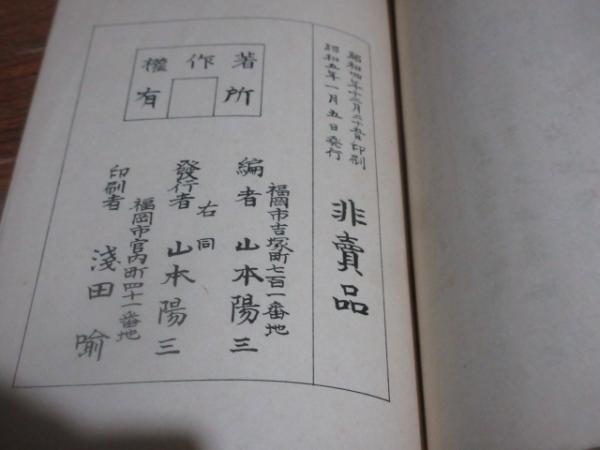 昭和四年十二月二十五日印刷
昭和五年一月五日発行
非賣品
著作權所有
福岡市吉塚町七百一番地
編者 山本陽三
右同
發行者 山本陽三
福岡市官内町四十一番地
印刷者 淺田喻